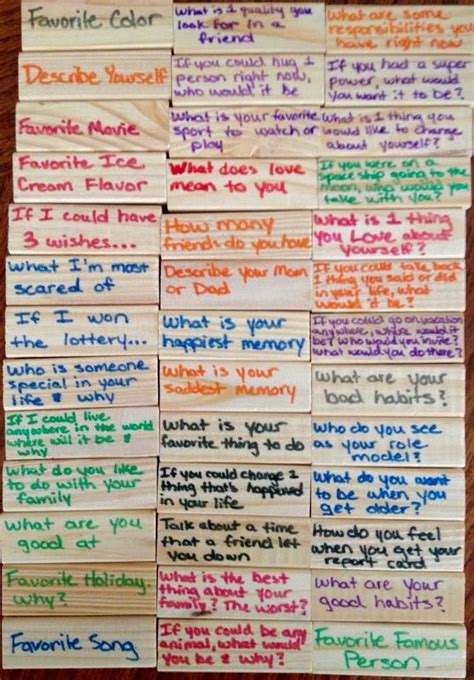 Favorite Color
What is 1 quality you
look for in a
friend
What are some
responsibilities you
have right now
Describe Yourself
If you could hug 1
person right now,
who would it be
If you had a super
power, what would
you want it to be?
Favorite Movie
What is your favorite
sport to watch or
play
What is 1 thing you
would like to change
about yourself?
Favorite Ice
Cream Flavor
What does love
mean to you
If you were on a
space ship going to the
moon, who would you
take with you?
If I could have
3 wishes...
How many
friends do you have
What is 1 thing
you Love about
yourself?
What I'm most
scared of
Describe your Mom
or Dad
If you could take back
1 thing you said or did
in your life, what
would it be?
If I won
the lottery...
What is your
happiest memory
If you could go on vacation
anywhere, where would it
be? Who would you invite?
What would you do there?
Who is someone
special in your
life & why
What is your
saddest memory
What are your
bad habits?
If I could live
anywhere in the world
where will it be &
why
What is your
favorite thing to do
Who do you see
as your role
model?
What do you like
to do with your
family
If you could change 1
thing that's happened
in your life
What do you want
to be when you
get older?
What are you
good at
Talk about a time
that a friend let
you down
How do you feel
when you get your
report card
Favorite Holiday,
why?
What is the best
thing about your
family? The worst?
What are your
good habits?
Favorite Song
If you could be any
animal, what would
you be & why?
Favorite Famous
Person